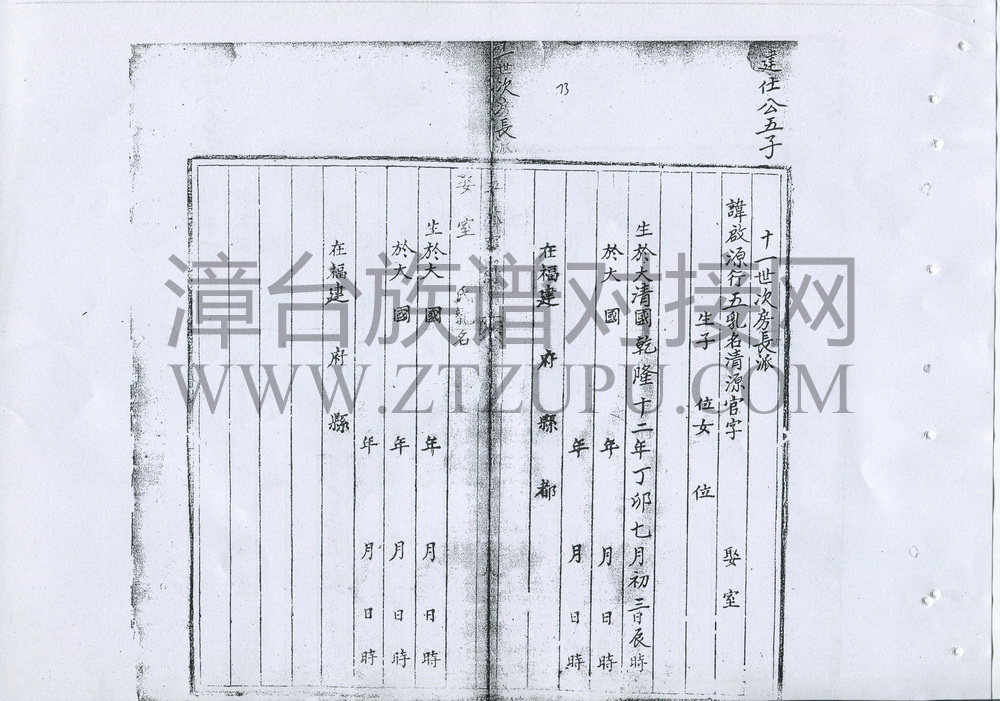 建仕公五子
十一世次房長派
諱啟源行五乳名清源官字 娶室
生子 位女 位
生於大清國乾隆十二年丁卯七月初三日辰時
於大 國 年 月 日 時
年 月 日 時
在福建 府 縣 都
73
一世次房長派
娶室 氏乳名
生於大 國 年 月 日 時
於大 國 年 月 日 時
年 月 日 時
在福建 府 縣
漳台族谱对接网
WWW.ZTZUPU.COM